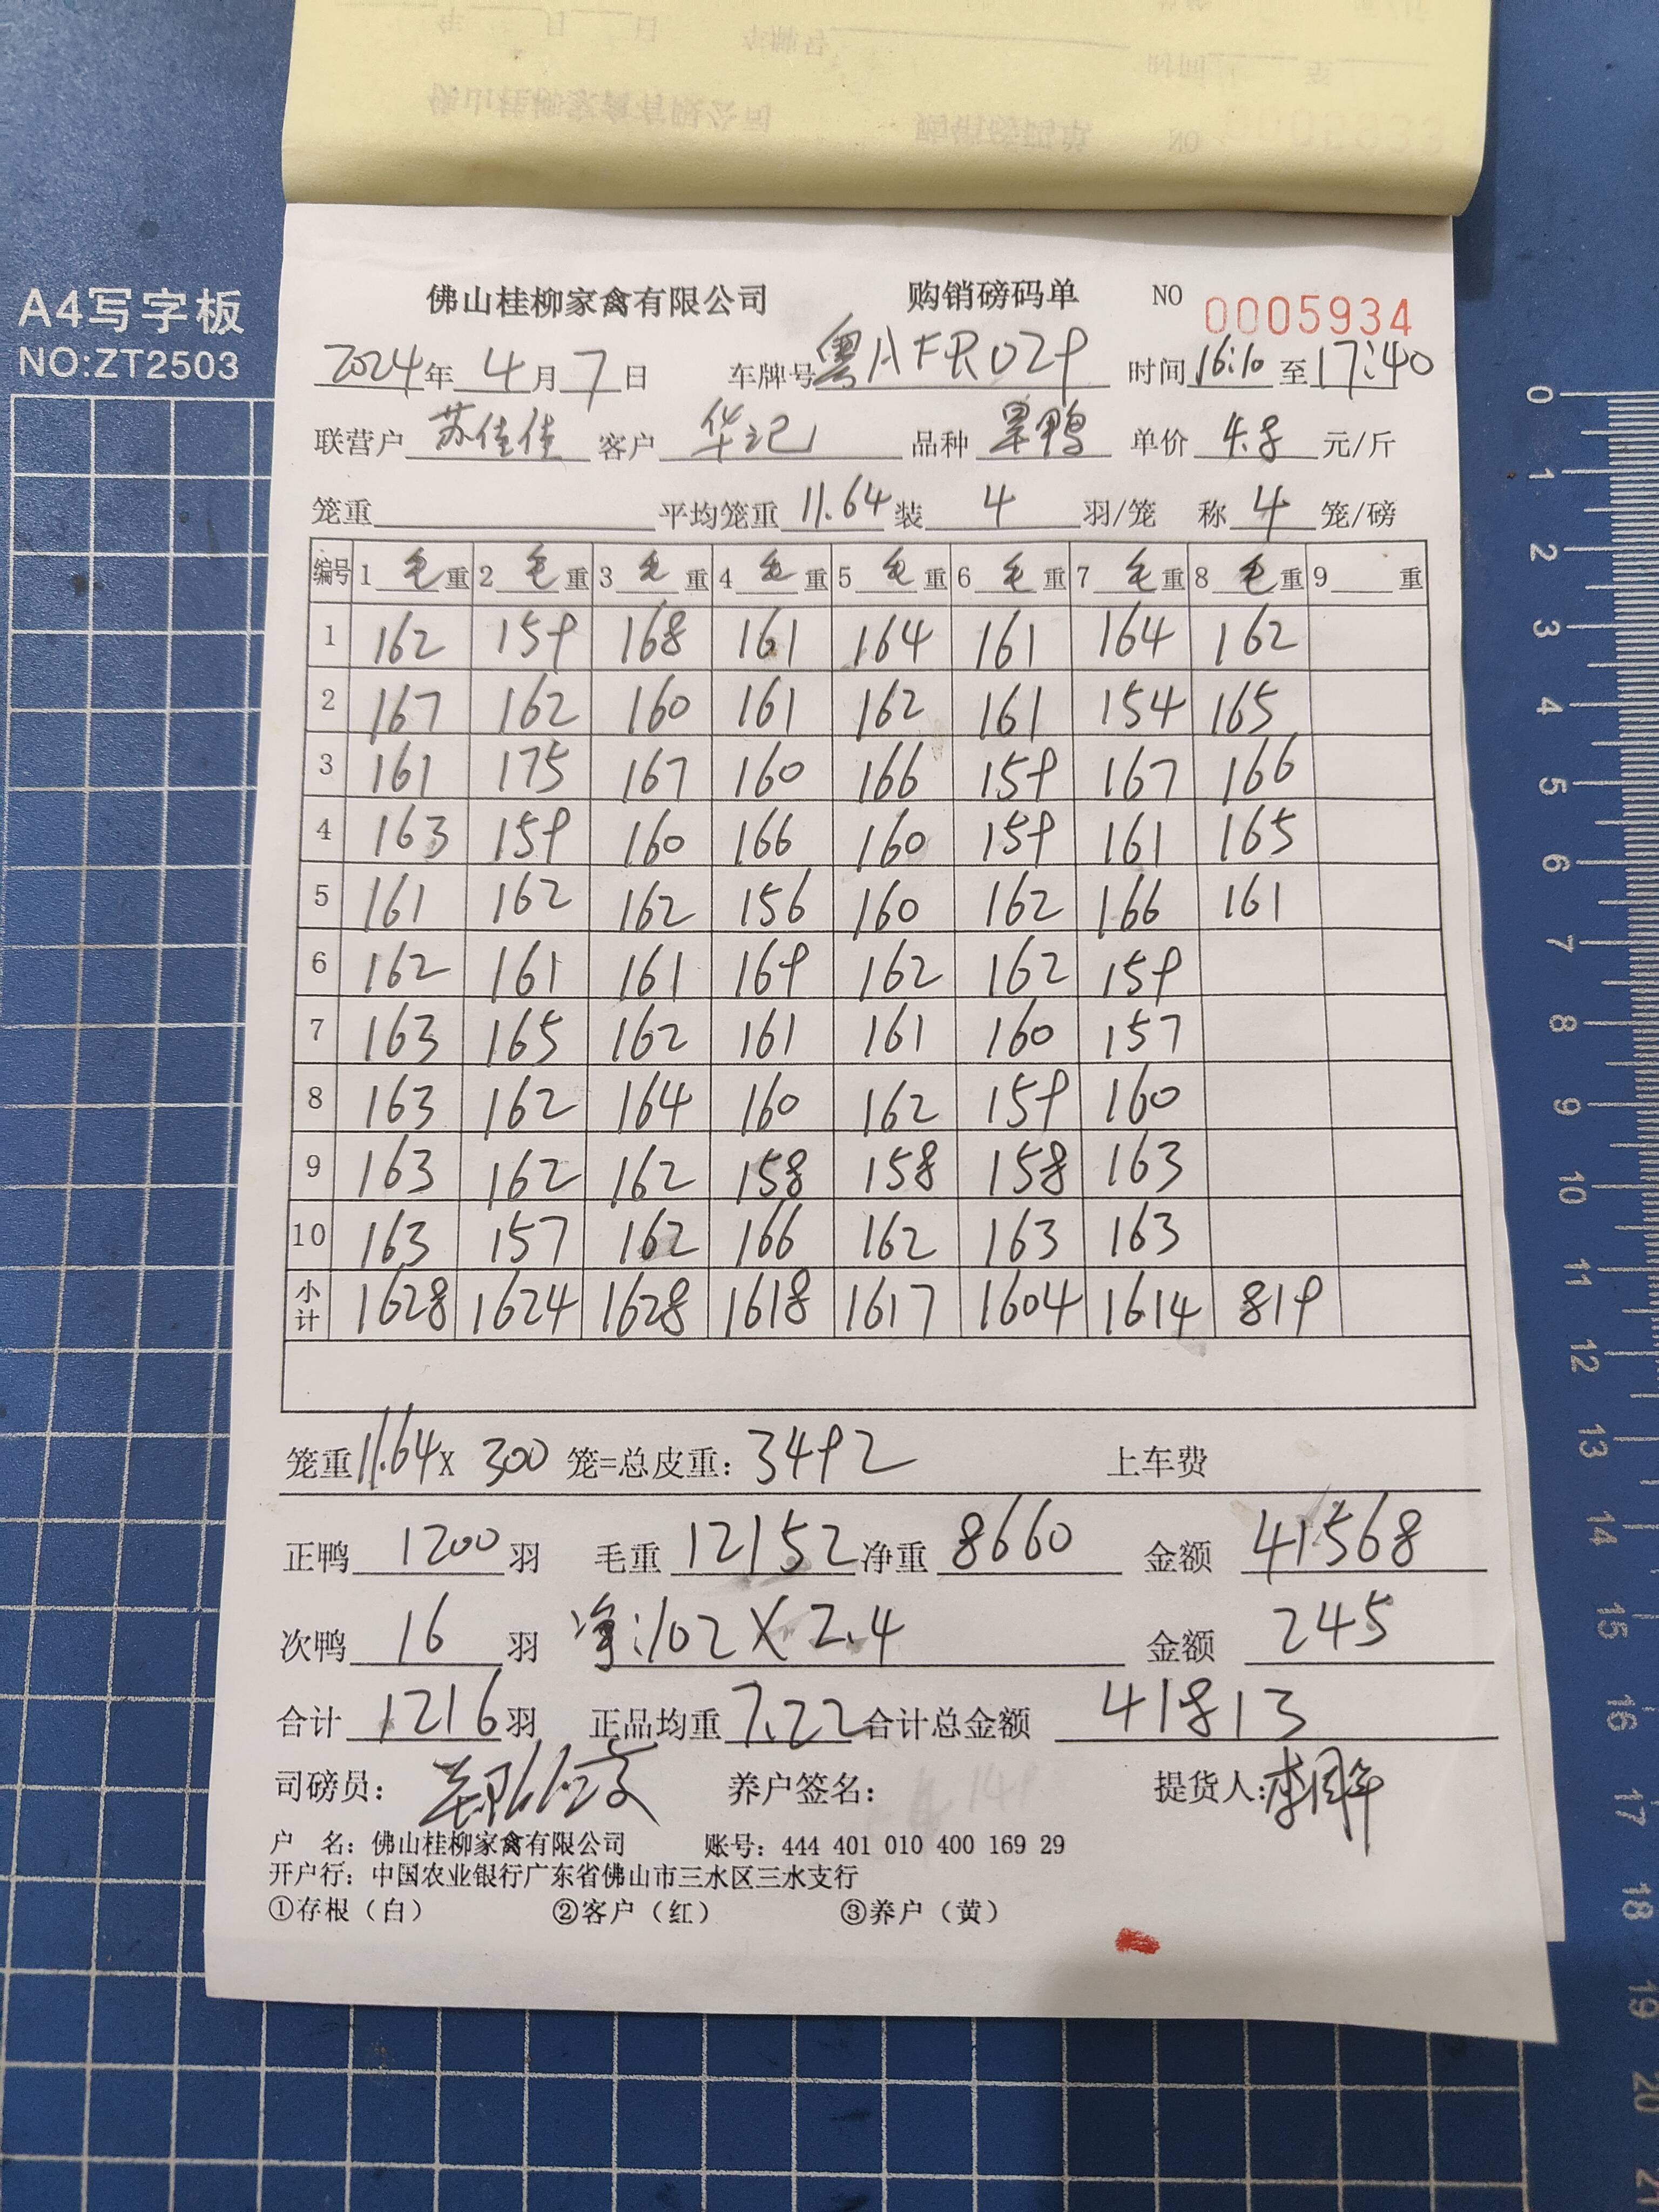 A4写字板
NO:ZT2503
佛山桂柳家禽有限公司 购销磅码单 NO 0005934
2024年4月7日 车牌号粤AFR029 时间16:10至17:40
联营户 苏佳佳 客户 华记 品种 旱鸭 单价 4.8 元/斤
笼重 平均笼重 11.64 装 4 羽/笼 称 4 笼/磅
编号 1毛重 2毛重 3毛重 4毛重 5毛重 6毛重 7毛重 8毛重 9 重
1 162 159 168 161 164 161 164 162
2 167 162 160 161 162 161 154 165
3 161 175 167 160 166 159 167 166
4 163 159 160 166 160 159 161 165
5 161 162 162 156 160 162 166 161
6 162 161 161 169 162 162 159
7 163 165 162 161 161 160 157
8 163 162 164 160 162 159 160
9 163 162 162 158 158 158 163
10 163 157 162 166 162 163 163
小计 1628 1624 1628 1618 1617 1604 1614 819
笼重11.64X 300 笼=总皮重：3492 上车费
正鸭 1200 羽 毛重 12152 净重 8660 金额 41568
次鸭 16 羽 净:102X2.4 金额 245
合计 1216 羽 正品均重 7.22 合计总金额 41813
司磅员： 养户签名： 提货人：
户 名：佛山桂柳家禽有限公司 账号：444 401 010 400 169 29
开户行：中国农业银行广东省佛山市三水区三水支行
①存根（白） ②客户（红） ③养户（黄）
0
1
2
3
4
5
6
7
8
9
10
11
12
13
14
15
16
17
18
19
20
21